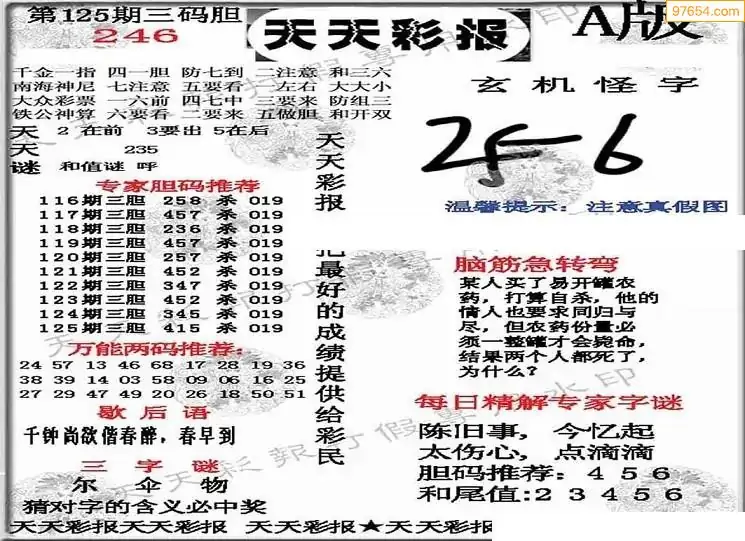 第125期三码胆
246
天天彩报
A版
97654.com
千金一指 四一胆 防七到 二注意 和三六
南海神尼 七注意 五要看 一左右 大大小
大众彩票 一六前 四七中 三要来 防组三
铁公神算 六要看 二要来 五做胆 和开双
天 2 在前 3要出 5在后
天 235
谜 和值谜 呼
专家胆码推荐
116期三胆 258 杀 019
117期三胆 457 杀 019
118期三胆 236 杀 019
119期三胆 457 杀 019
120期三胆 257 杀 019
121期三胆 452 杀 019
122期三胆 347 杀 019
123期三胆 452 杀 019
124期三胆 345 杀 019
125期三胆 415 杀 019
万能两码推荐:
24 57 13 46 68 17 28 19 36
38 39 14 03 58 09 06 16 25
27 29 47 49 20 26 18 50 51
歇后语
千钟尚欲偕春醉，春早到
三字谜
尔 伞 物
猜对字的含义必中奖
天天彩报
把最好的成绩提供给彩民
玄机怪字
256
温馨提示：注意真假图
脑筋急转弯
某人买了易开罐农
药，打算自杀，他的
情人也要求同归与
尽，但农药份量必
须一整罐才会毙命，
结果两个人都死了，
为什么？
每日精解专家字谜
陈旧事，今忆起
太伤心，点滴滴
胆码推荐：4 5 6
和尾值:2 3 4 5 6
天天彩报天天彩报 天天彩报★天天彩报